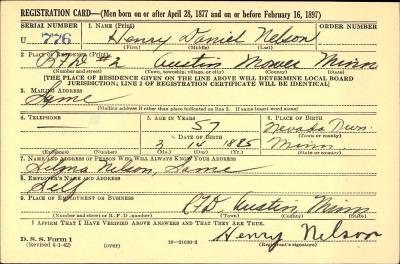 REGISTRATION CARD—(Men born on or after April 28, 1877 and on or before February 16, 1897)
SERIAL NUMBER 1. NAME (Print) ORDER NUMBER
U 776 Henry Daniel Nelson
(First) (Middle) (Last)
2. PLACE OF RESIDENCE (Print)
RFD #2 Austin Mower Minn
(Number and street) (Town, township, village, or city) (County) (State)
[THE PLACE OF RESIDENCE GIVEN ON THE LINE ABOVE WILL DETERMINE LOCAL BOARD
JURISDICTION; LINE 2 OF REGISTRATION CERTIFICATE WILL BE IDENTICAL]
3. MAILING ADDRESS
Same
[Mailing address if other than place indicated on line 2. If same insert word same]
4. TELEPHONE 5. AGE IN YEARS 6. PLACE OF BIRTH
57 Nevada Twn.
DATE OF BIRTH (Town or county)
2 14 1885 Minn.
(Exchange) (Number) (Mo.) (Day) (Yr.) (State or country)
7. NAME AND ADDRESS OF PERSON WHO WILL ALWAYS KNOW YOUR ADDRESS
Selma Nelson, Same
8. EMPLOYER'S NAME AND ADDRESS
Self
9. PLACE OF EMPLOYMENT OR BUSINESS
RFD Austin Minn
(Number and street or R. F. D. number) (Town) (County) (State)
I AFFIRM THAT I HAVE VERIFIED ABOVE ANSWERS AND THAT THEY ARE TRUE.
D. S. S. Form 1
(Revised 4-1-42) (over) 16—21630-2 Henry Nelson
(Registrant's signature)